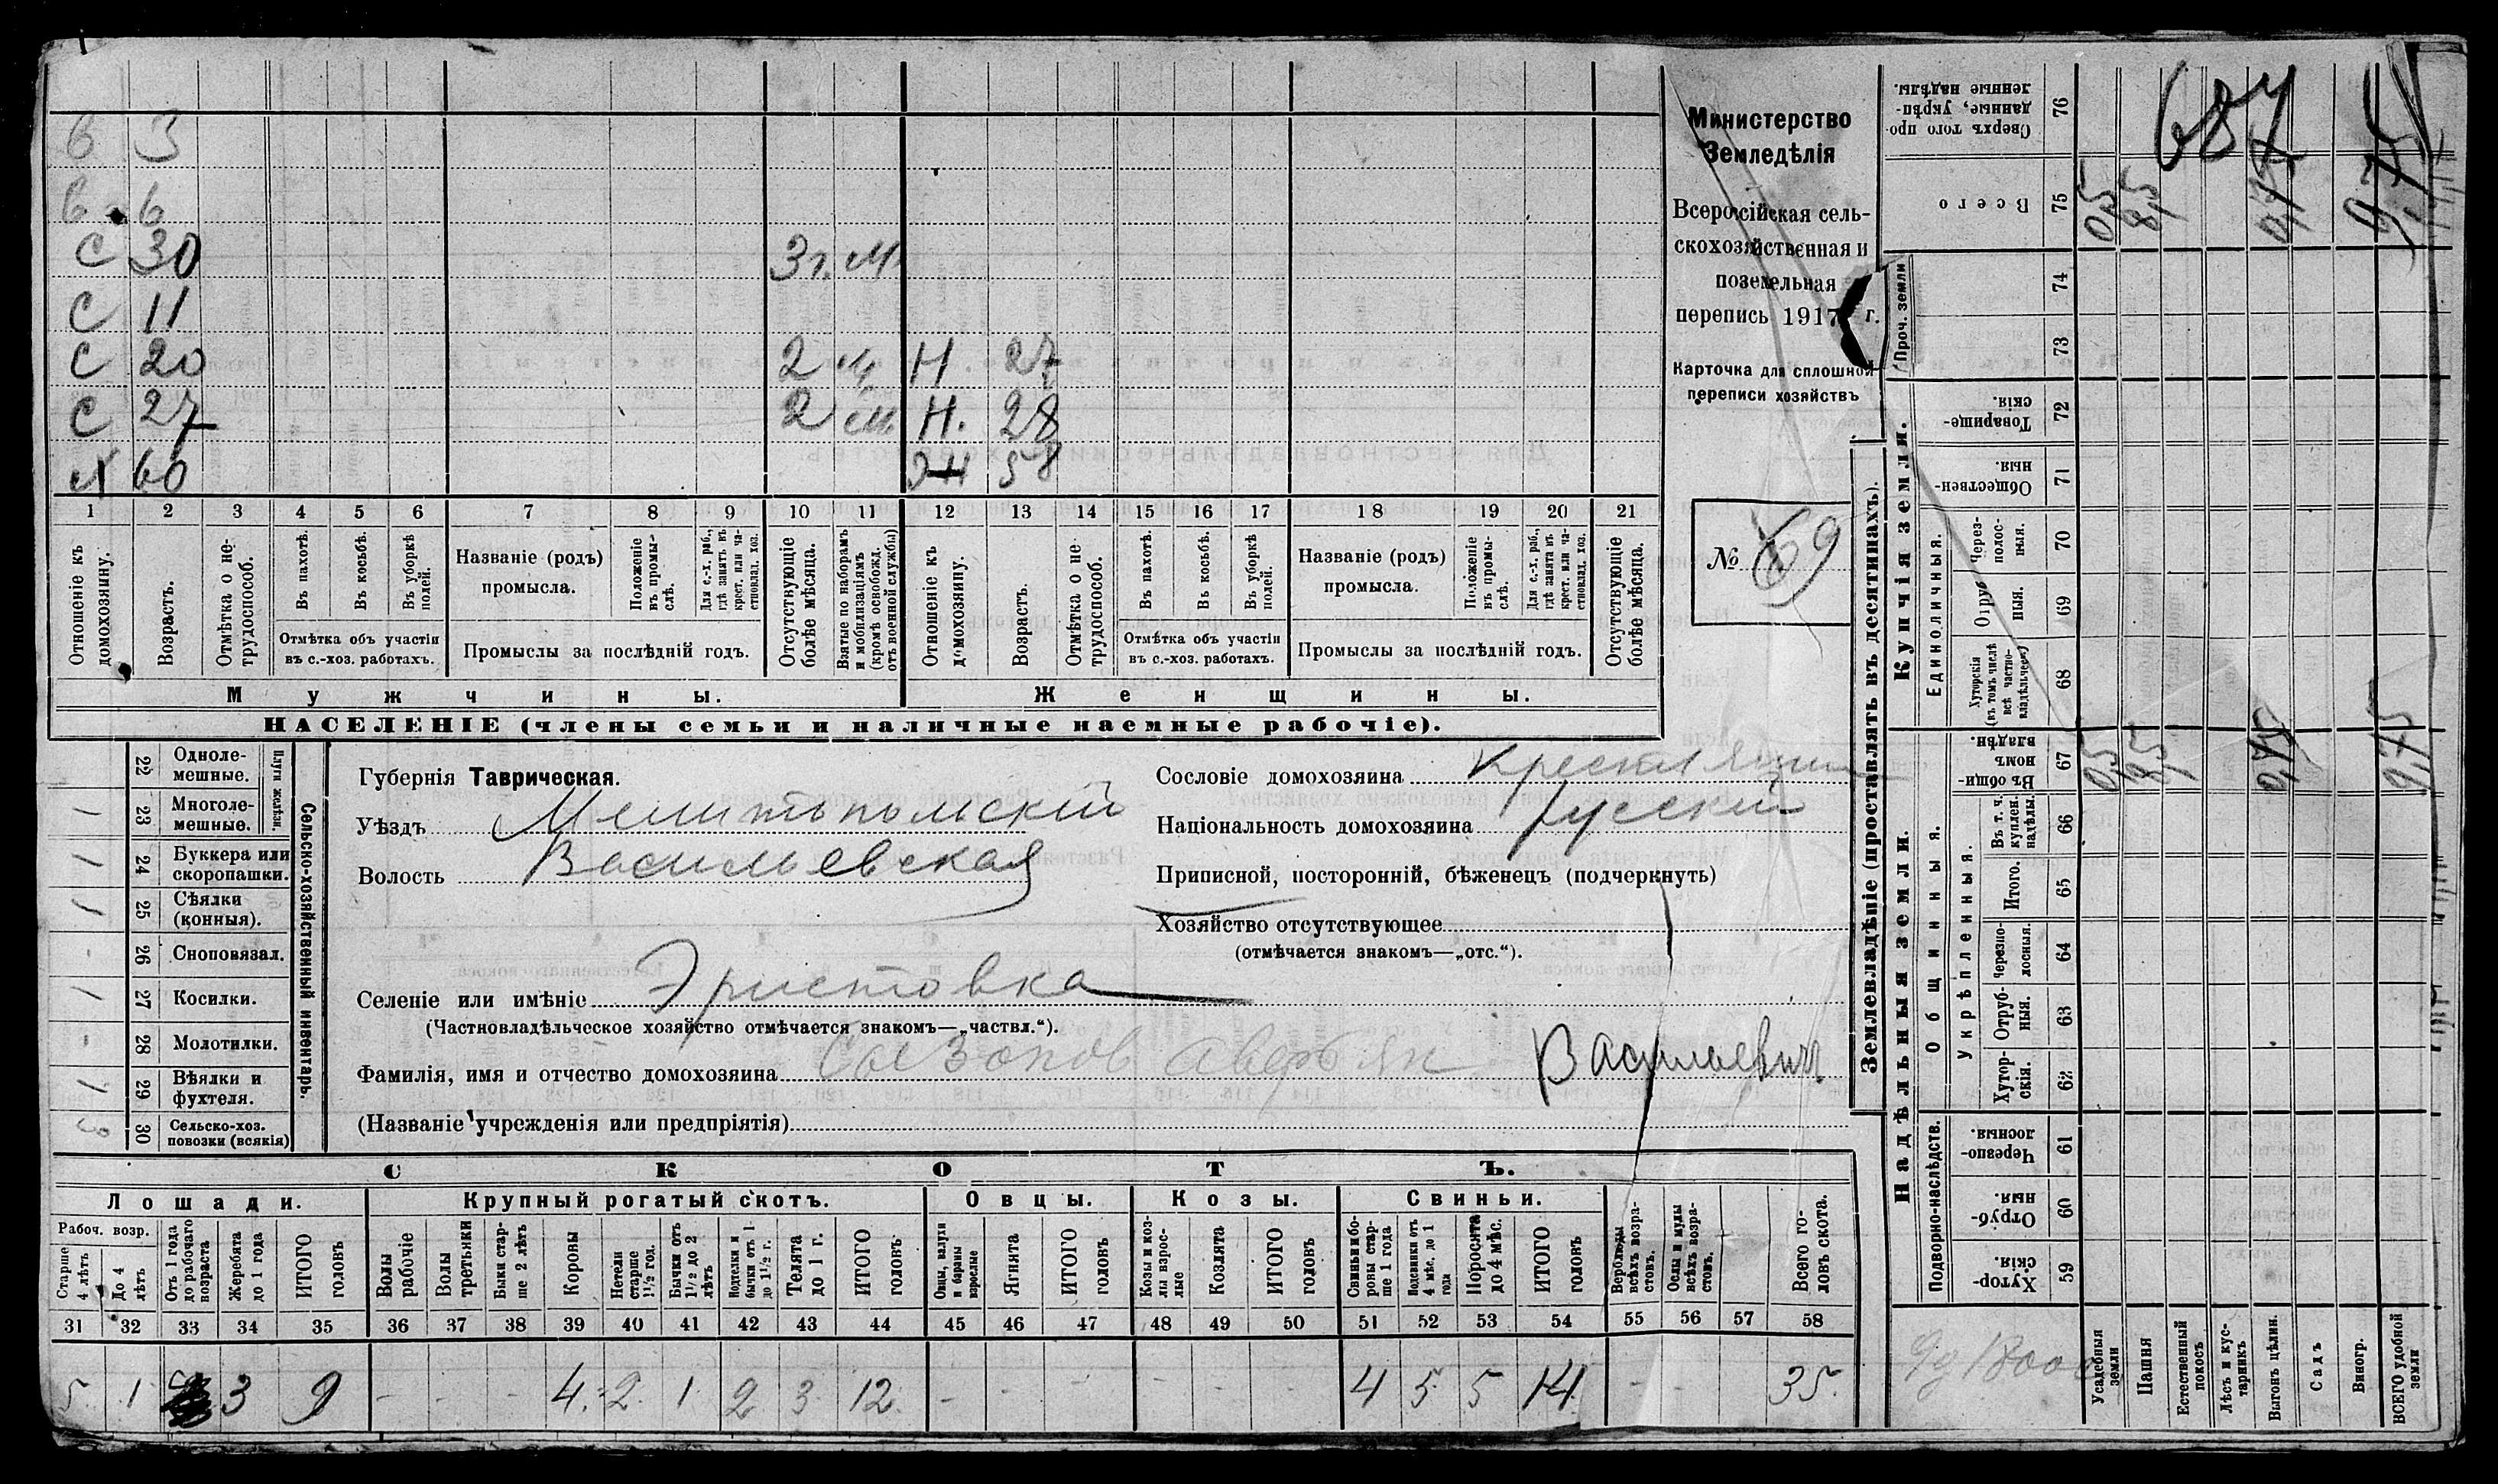 в 3
в 6
С 30 3 г. м.
С 11
С 20 2 м Н 27
С 27 2 м. Н. 28
М 60 Н 58
1 2 3 4 5 6 7 8 9 10 11 12 13 14 15 16 17 18 19 20 21
Отношеніе къ домохозяину.
Возрастъ.
Отмѣтка о не-трудоспособ.
Въ пахотѣ.
Въ косьбѣ.
Въ уборкѣ полей.
Отмѣтка объ участіи
въ с.-хоз. работахъ.
Названіе (родъ)
промысла.
Положеніе въ промы-слѣ.
Для с.-х. раб., гдѣ занятъ въ крест. или ча-стновлад. хоз.
Промыслы за послѣдній годъ.
Отсутствующіе болѣе мѣсяца.
Взятые по наборамъ и мобилизаціямъ (кромѣ освобожд. отъ военной службы)
Отношеніе къ домохозяину.
Возрастъ.
Отмѣтка о не трудоспособ.
Въ пахотѣ.
Въ косьбѣ.
Въ уборкѣ полей.
Отмѣтка объ участіи
въ с.-хоз. работахъ.
Названіе (родъ)
промысла.
Положеніе въ промы-слѣ.
Для с.-х. раб., гдѣ занята въ крест. или ча-стновлад. хоз.
Промыслы за послѣдній годъ.
Отсутствующіе болѣе мѣсяца.
Мужчины.
Женщины.
НАСЕЛЕНІЕ (члены семьи и наличные наемные рабочіе).
Министерство
Земледѣлія
Всеросійская сель-
скохозяйственная и
поземельная
перепись 1917 г.
Карточка для сплошной
переписи хозяйствъ
№ 69
22 Одноле-мешные.
1 23 Многоле-мешные.
Плуги желѣзн.
1 24 Буккера или скоропашки.
1 25 Сѣялки (конныя).
- 26 Сноповязал.
1 27 Косилки.
- 28 Молотилки.
1 29 Вѣялки и фухтеля.
3 30 Сельско-хоз. повозки (всякія)
Сельско-хозяйственный инвентарь.
Губернія Таврическая.
Уѣздъ Мелитопольскій
Волость Васильевская
Селеніе или имѣніе Эристовка
(Частновладѣльческое хозяйство отмѣчается знакомъ—„частвл.“).
Фамилія, имя и отчество домохозяина Созонов Аверьян Васильевич
(Названіе учрежденія или предпріятія)
Сословіе домохозяина Крестьянин
Національность домохозяина Русскій
Приписной, посторонній, бѣженецъ (подчеркнуть)
Хозяйство отсутствующее
(отмѣчается знакомъ—„отс.“).
СКОТЪ.
Лошади. Крупный рогатый скотъ. Овцы. Козы. Свиньи.
Рабоч. возр.
Старше 4 лѣтъ
До 4 лѣтъ
Отъ 1 года до рабочаго возраста
Жеребята до 1 года
ИТОГО головъ
Волы рабочіе
Волы третьяки
Быки стар-ше 2 лѣтъ
Коровы
Нетели старше 1½ год.
Бычки отъ 1½ до 2 лѣтъ
Подтелки и бычки отъ 1 до 1½ г.
Телята до 1 г.
ИТОГО головъ
Овцы, валухи и бараны взрослые
Ягнята
ИТОГО головъ
Козы и коз-лы взрос-лые
Козлята
ИТОГО головъ
Свиньи и бо-ровы стар-ше 1 года
Подсвинки отъ 4 мѣс. до 1 года
Поросята до 4 мѣс.
ИТОГО головъ
Верблюды всѣхъ возра-стовъ.
Ослы и мулы всѣхъ возра-стовъ.
Всего го-ловъ скота.
31 32 33 34 35 36 37 38 39 40 41 42 43 44 45 46 47 48 49 50 51 52 53 54 55 56 57 58
5 1 3 9 - - - 4 2 1 2 3 12 - - - - - - 4 5 5 14 - - 35
Землевладѣніе (проставлять въ десятинахъ).
Сверхъ того про-данные, укрѣп-ленные надѣлы. 76
687
Всего 75 0,5 8,5 0,75 9,75
Проч. земли 74
73
Купчія земли.
Товарище-скія. 72
Обществен-ныя. 71
Единоличныя.
Через-полос-ныя. 70
Отруб-ныя. 69
Хуторскія (въ томъ числѣ всѣ частно-владѣльческ) 68
Надѣльныя земли.
Общинныя.
Въ общи-номъ владѣн. 67 0,5 8,5 0,75 9,75
Укрѣпленныя.
Въ т. ч. куплен. надѣлы. 66
Итого. 65
Черезпо-лосныя. 64
Отруб-ныя. 63
Хутор-скія. 62
Подворно-наслѣдств.
Черезпо-лосныя. 61
Отруб-ныя. 60
Хутор-скія. 59
Усадебныя земли
Пашня
Естественный покосъ
Лѣсъ и кус-тарникъ
Выгонъ цѣлин.
Садъ
Виногр.
ВСЕГО удобной земли